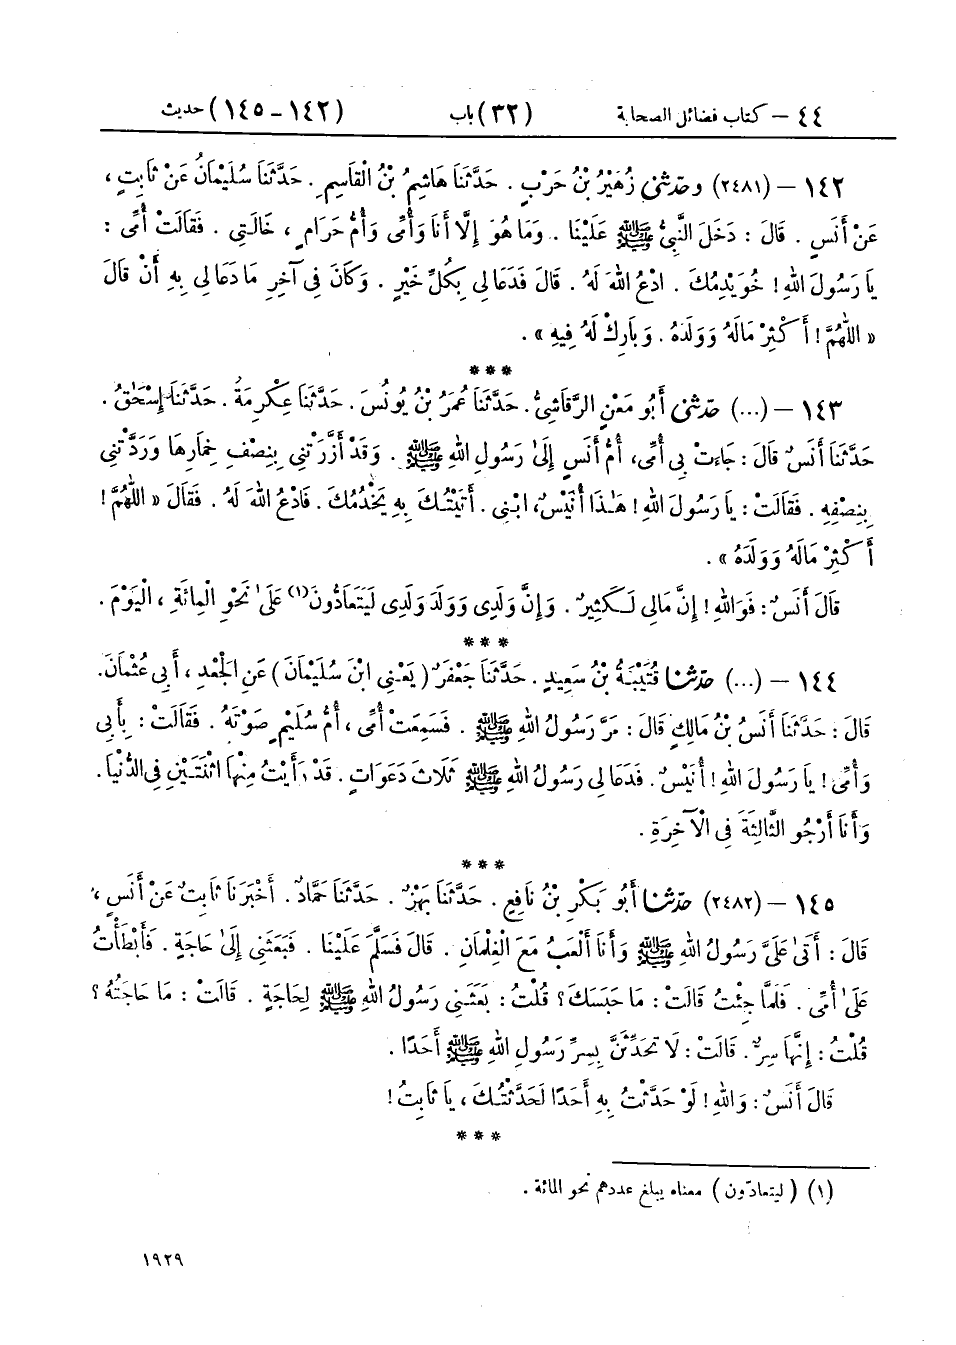 ٤٤ – كتاب فضائل الصحابة (٣٢) باب (١٤٢ – ١٤٥) حديث
١٤٢ – (٢٤٨١) وحَدَّثَنِي زُهَيْرُ بْنُ حَرْبٍ . حَدَّثَنَا هَاشِمُ بْنُ الْقَاسِمِ . حَدَّثَنَا سُلَيْمَانُ عَنْ ثَابِتٍ ،
عَنْ أَنَسٍ . قَالَ : دَخَلَ النَّبِيُّ ﷺ عَلَيْنَا . وَمَا هُوَ إِلَّا أَنَا وَأُمِّي وَأُمُّ حَرَامٍ ، خَالَتِي . فَقَالَتْ أُمِّي :
يَا رَسُولَ اللهِ ! خُوَيْدِمُكَ . ادْعُ اللهَ لَهُ . قَالَ فَدَعَا لِي بِكُلِّ خَيْرٍ . وَكَانَ فِي آخِرِ مَا دَعَا لِي بِهِ أَنْ قَالَ
« اللَّهُمَّ ! أَكْثِرْ مَالَهُ وَوَلَدَهُ . وَبَارِكْ لَهُ فِيهِ » .
***
١٤٣ – (...) حَدَّثَنِي أَبُو مَعْنٍ الرَّقَاشِيُّ . حَدَّثَنَا عُمَرُ بْنُ يُونُسَ . حَدَّثَنَا عِكْرِمَةُ . حَدَّثَنَا إِسْحَاقُ .
حَدَّثَنَا أَنَسٌ قَالَ : جَاءَتْ بِي أُمِّي ، أُمُّ أَنَسٍ إِلَىٰ رَسُولِ اللهِ ﷺ . وَقَدْ أَزَّرَتْنِي بِنِصْفِ خِمَارِهَا وَرَدَّتْنِي
بِنِصْفِهِ . فَقَالَتْ : يَا رَسُولَ اللهِ ! هَٰذَا أُنَيْسٌ ، ابْنِي . أَتَيْتُكَ بِهِ يَخْدُمُكَ . فَادْعُ اللهَ لَهُ . فَقَالَ « اللَّهُمَّ !
أَكْثِرْ مَالَهُ وَوَلَدَهُ » .
قَالَ أَنَسٌ : فَوَاللهِ ! إِنَّ مَالِي لَكَثِيرٌ . وَإِنَّ وَلَدِي وَوَلَدَ وَلَدِي لَيَتَعَادُّونَ (١) عَلَىٰ نَحْوِ الْمِائَةِ ، الْيَوْمَ .
***
١٤٤ – (...) حَدَّثَنَا قُتَيْبَةُ بْنُ سَعِيدٍ . حَدَّثَنَا جَعْفَرٌ ( يَعْنِي ابْنَ سُلَيْمَانَ ) عَنِ الْجَعْدِ ، أَبِي عُثْمَانَ .
قَالَ : حَدَّثَنَا أَنَسُ بْنُ مَالِكٍ قَالَ : مَرَّ رَسُولُ اللهِ ﷺ . فَسَمِعَتْ أُمِّي ، أُمُّ سُلَيْمٍ صَوْتَهُ . فَقَالَتْ : بِأَبِي
وَأُمِّي ! يَا رَسُولَ اللهِ ! أُنَيْسٌ . فَدَعَا لِي رَسُولُ اللهِ ﷺ ثَلَاثَ دَعَوَاتٍ . قَدْ رَأَيْتُ مِنْهَا اثْنَتَيْنِ فِي الدُّنْيَا .
وَأَنَا أَرْجُو الثَّالِثَةَ فِي الْآخِرَةِ .
***
١٤٥ – (٢٤٨٢) حَدَّثَنَا أَبُو بَكْرِ بْنُ نَافِعٍ . حَدَّثَنَا بَهْزٌ . حَدَّثَنَا حَمَّادٌ . أَخْبَرَنَا ثَابِتٌ عَنْ أَنَسٍ ،
قَالَ : أَتَىٰ عَلَيَّ رَسُولُ اللهِ ﷺ وَأَنَا أَلْعَبُ مَعَ الْغِلْمَانِ . قَالَ فَسَلَّمَ عَلَيْنَا . فَبَعَثَنِي إِلَىٰ حَاجَةٍ . فَأَبْطَأْتُ
عَلَىٰ أُمِّي . فَلَمَّا جِئْتُ قَالَتْ : مَا حَبَسَكَ ؟ قُلْتُ : بَعَثَنِي رَسُولُ اللهِ ﷺ لِحَاجَةٍ . قَالَتْ : مَا حَاجَتُهُ ؟
قُلْتُ : إِنَّهَا سِرٌّ . قَالَتْ : لَا تُحَدِّثَنَّ بِسِرِّ رَسُولِ اللهِ ﷺ أَحَدًا .
قَالَ أَنَسٌ : وَاللهِ ! لَوْ حَدَّثْتُ بِهِ أَحَدًا لَحَدَّثْتُكَ ، يَا ثَابِتُ !
***
(١) ( ليتعادّون ) معناه يبلغ عددهم نحو المائة .
١٩٢٩